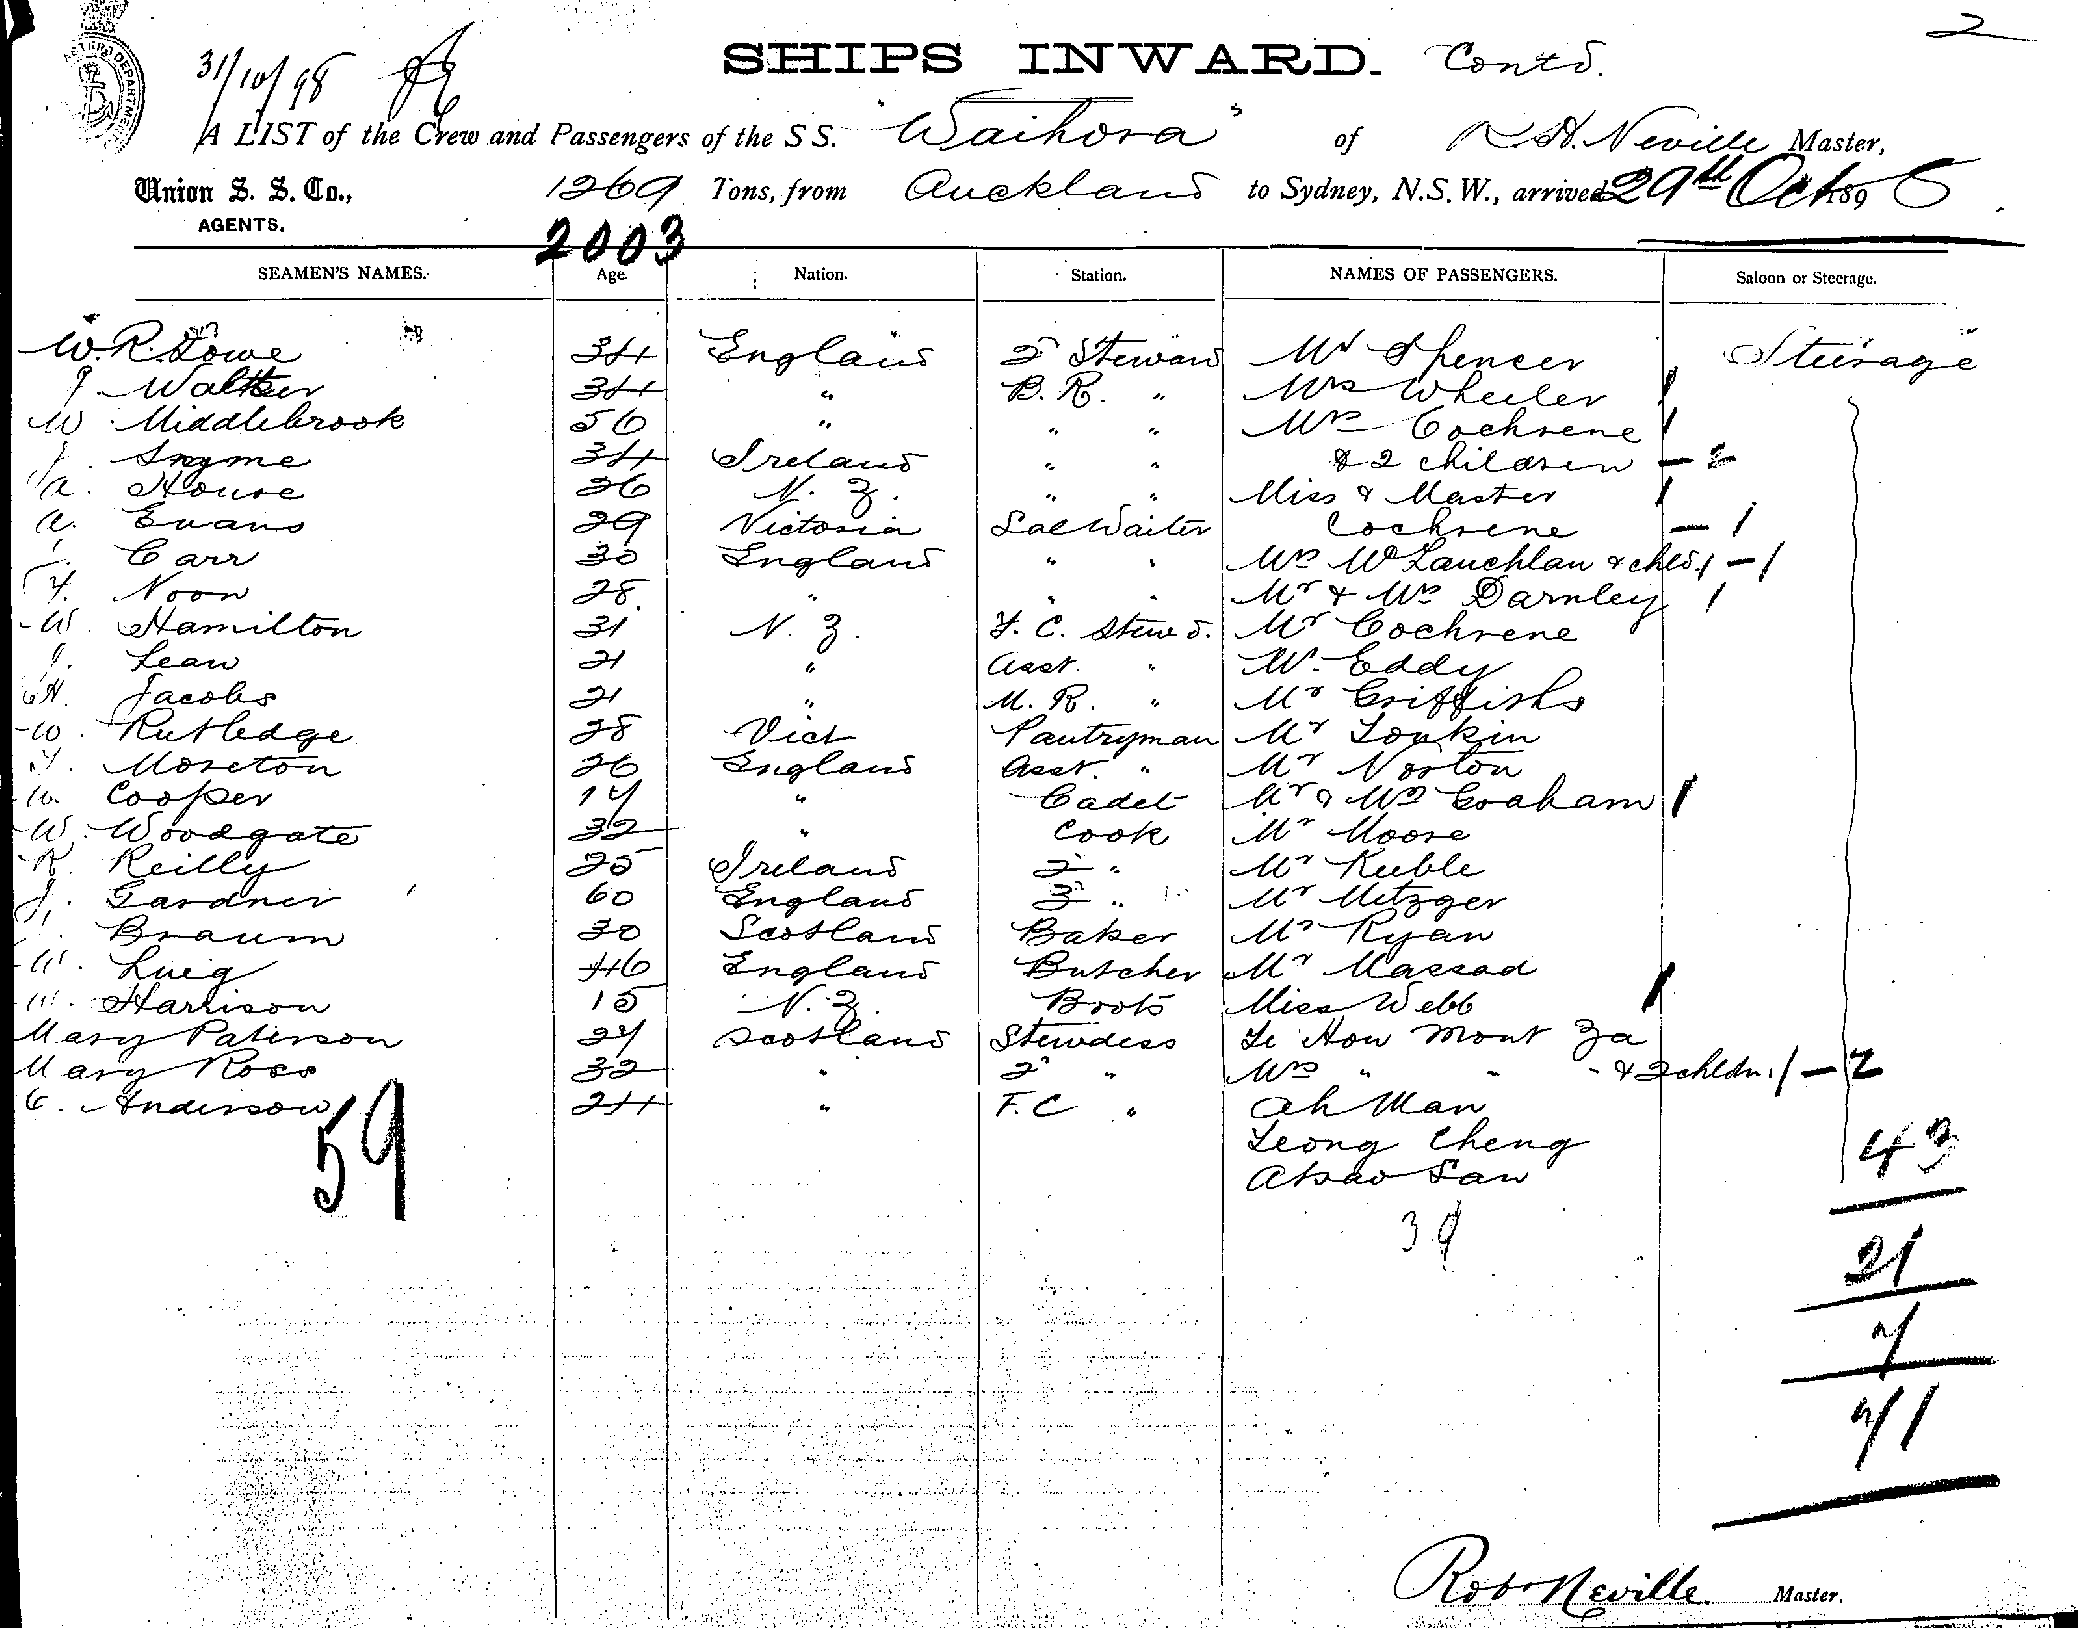 2
SHIPS INWARD. Contd.
31/10/98
A LIST of the Crew and Passengers of the S S. "Waihora" of R H. Neville Master,
Union S. S. Co., 1269 Tons, from Auckland to Sydney, N.S.W., arrived 29th Oct 1898
AGENTS.
2003
SEAMEN'S NAMES. Age. Nation. Station. NAMES OF PASSENGERS. Saloon or Steerage.
W. R. Lowe 34 England 2 Steward Mr Spencer Steerage
J Walker 34 " B. R. " Mrs Wheeler 1
W Middlebrook 56 " " " Mrs Cochrene 1
34 Ireland " " & 2 children - 2
A. House 26 N. Z. " " Miss & Master 1
A. Evans 29 Victoria Sal Waiter Cochrene - 1
Carr 30 England " " Mrs McLauchlan & chld. 1 - 1
F. Noon 28 " " " Mr & Mrs Darnley 1
W. Hamilton 31 N. Z. F. C. Stewd. Mr Cochrene
J. Lean 21 " Asst. " Mr Eddy
H. Jacobs 21 " M. R. " Mr Griffiths
W. Rutledge 28 Vict Pantryman Mr Tonkin
F. Moreton 26 England Asst. " Mr Norton
W. Cooper 17 " Cadet Mr & Mrs Graham 1
W. Woodgate 32 " Cook Mr Moore
R. Reilly 25 Ireland 2 " Mr Keeble
J. Gardner 60 England 3 " Mr Metzger
Braum 30 Scotland Baker Mr Ryan
W. Lueg 46 England Butcher Mr Massad
W. Harrison 15 N. Z. Boots Miss Webb 1
Mary Paterson 27 Scotland Stewdess Le Hon Mont Za
Mary Ross 32 " 2 " Mrs " " " & 2 chldn. 1 - 2
C. Anderson 24 " F. C " Ah Man
59 Leong Cheng 43
San
39
21
7
71
Robt Neville. Master.